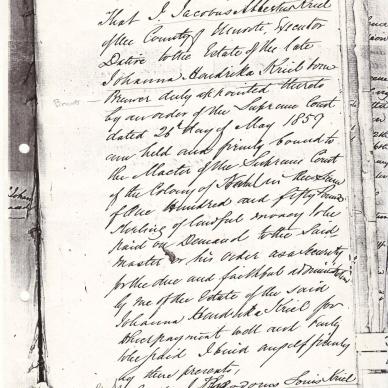 That I, Jacobus Albertus Kriel
of the County of Umvoti, Executor
Dative to the Estate of the late
Johanna Hendrika Kriel born
Brewer duly appointed thereto
by an order of the Supreme Court
dated 20th day of May 1859
am held and firmly bound to
the Master of the Supreme Court
of the Colony of Natal in the Sum
of One Hundred and fifty Pounds
Sterling of lawful money to be
paid on Demand to the Said
Master or his order as a Security
for the due and faithful administration
by me of the Estate of the said
Johanna Hendrika Kriel for
which payment well and truly
to be paid I bind myself firmly
by these presents
Louis Kriel